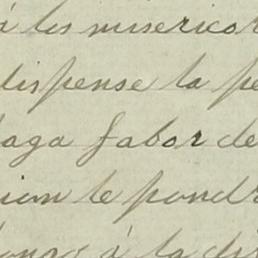 á los misericor
dispense la pe
haga fabor de
ion le pondr
á la dis